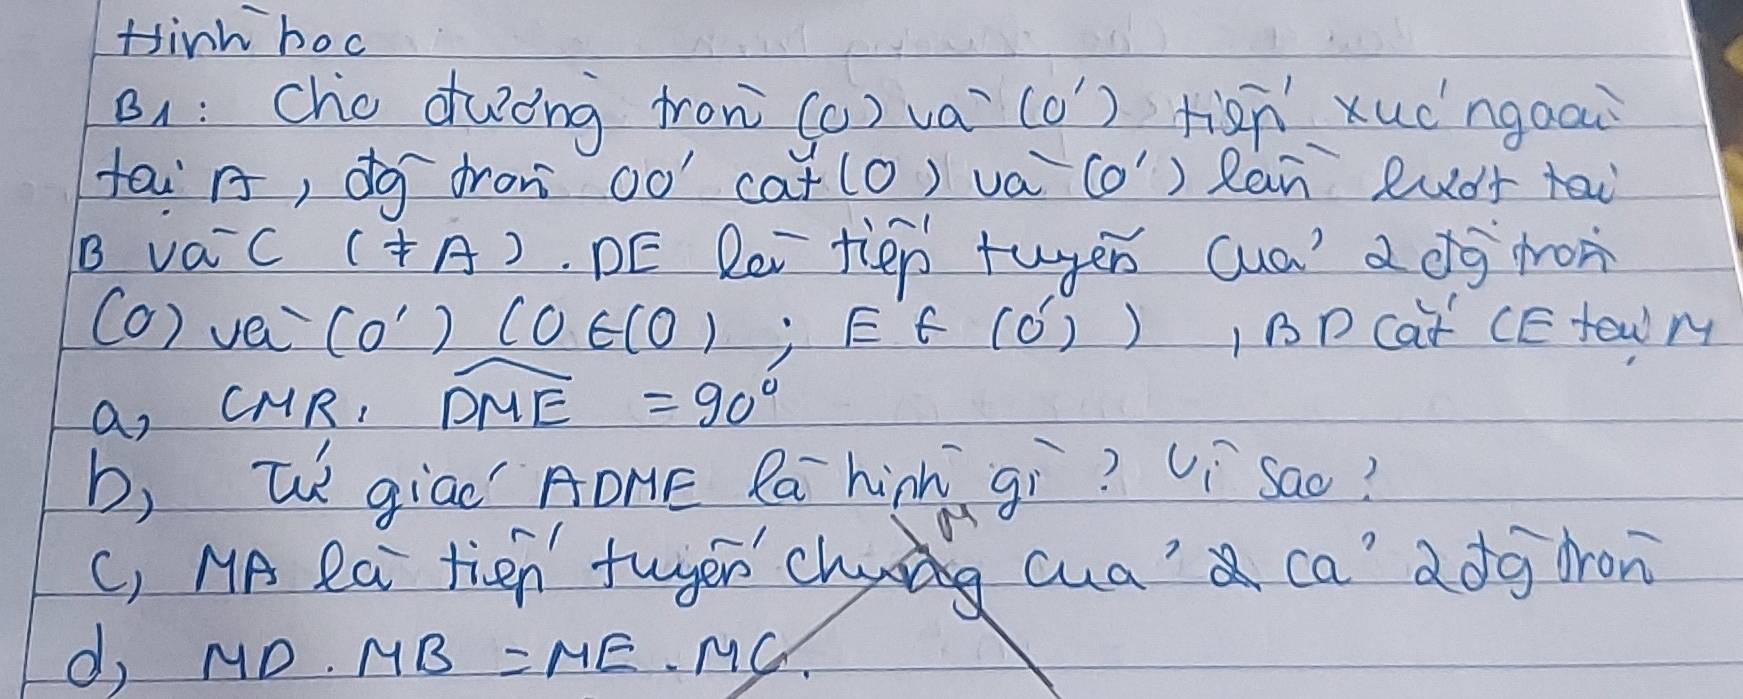 Hình học
B1: Cho đường tròn (O) và (O') tiếp xúc ngoài
tại A, đg tròn OO' cắt (O) và (O') lần lượt tại
B và C (≠ A). DE là tiếp tuyến của 2 đg tròn
(O) và (O') (O ∈ (O) ; E ∈ (O')) , BD cắt CE tại M
a, CMR, \widehat{DME} = 90⁰
b, Tứ giác ADME là hình gì? Vì sao?
M
c, MA là tiếp tuyến chung của cả 2 đg tròn
d, MD . MB = ME . MC.